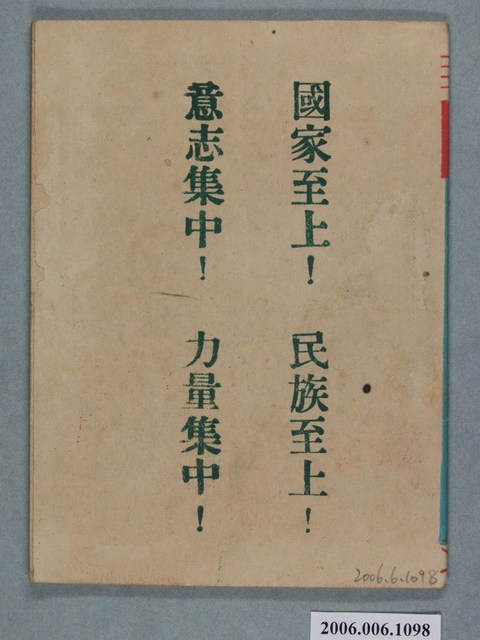 國家至上！ 民族至上！
意志集中！ 力量集中！
2006.6.1098
2006.006.1098